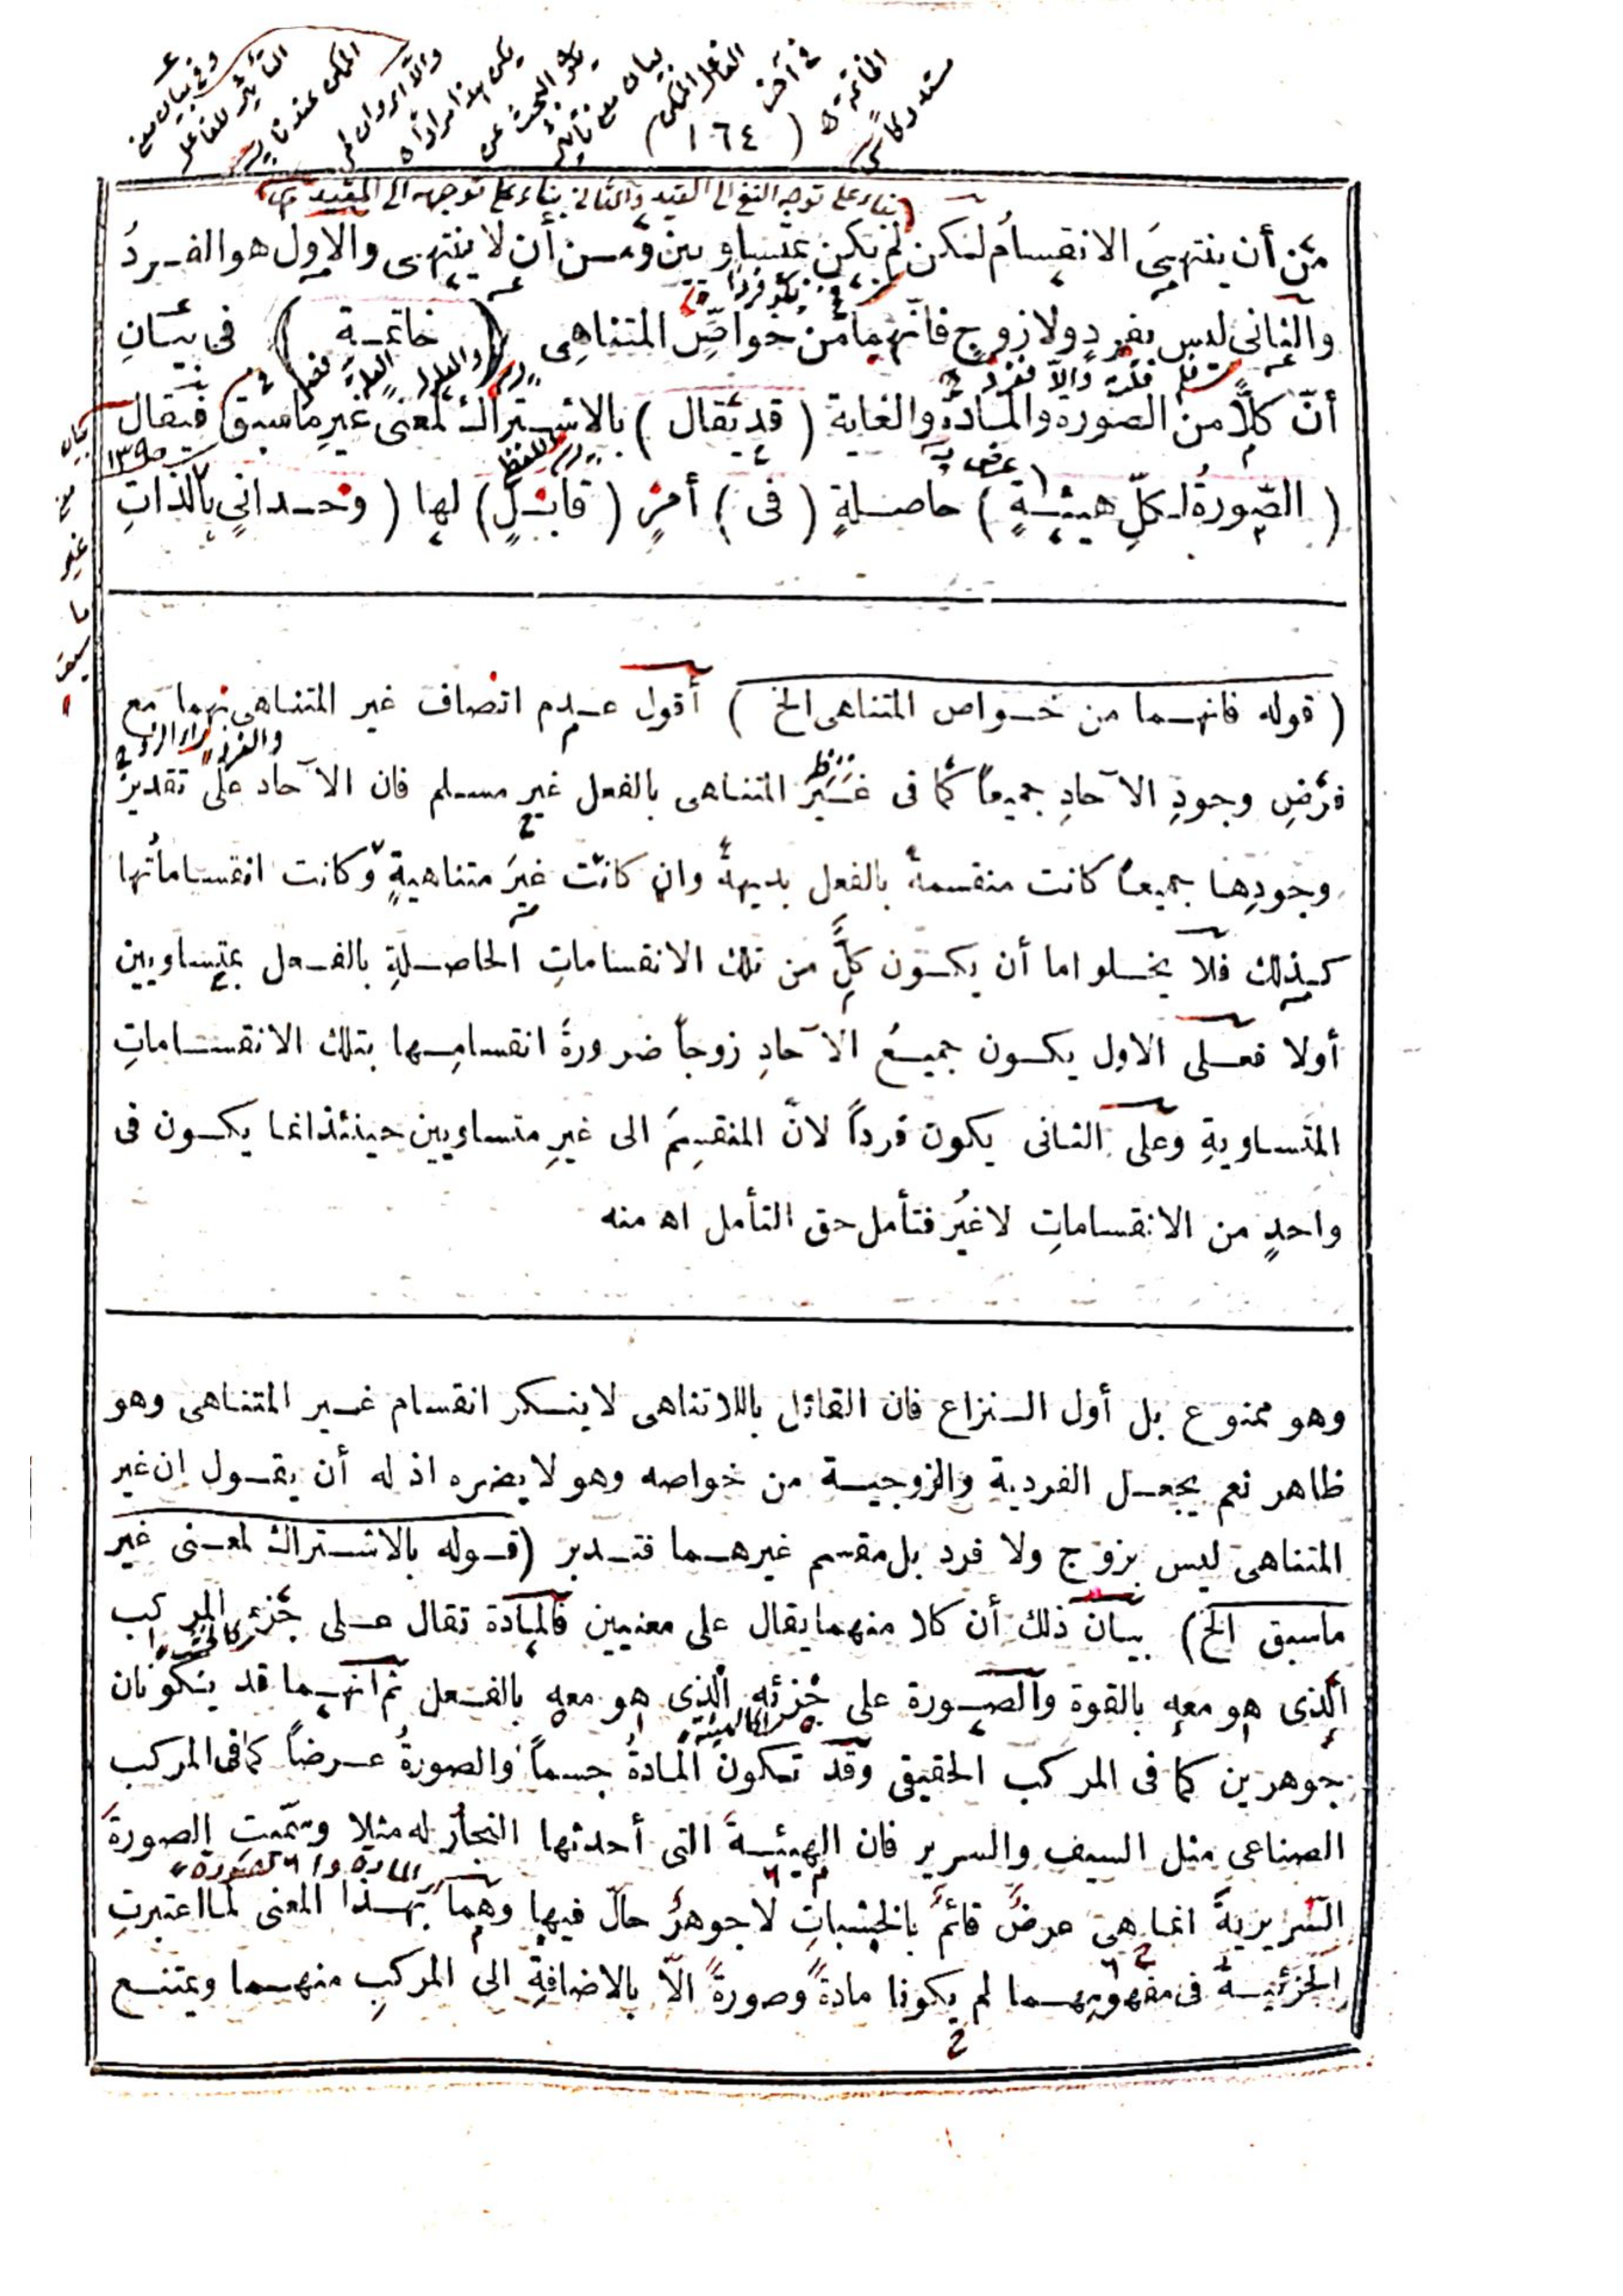 ( ١٦٤ )
بناء على توجه النفى الى القيد والثانى بناء على توجهه الى المقيد
من أن ينتهىَ الانقسامُ لكن لم يكن بمتساويين ومن أن لا ينتهى والاول هو الفردُ
والثانى ليس بفردٍ ولا زوجٍ فانّهما من خواصِّ المتناهى ( خاتمة ) فى بيانِ
أنّ كلاًّ من الصورة والمادة والغاية ( قد يقال ) بالاشتراك لمعنى غيرِ ما سبق فيقال
( الصّورةُ لكلِّ هيئةٍ ) حاصلةٍ ( فى ) أمرٍ ( قابلٍ ) لها ( وحدانىٍ بالذاتِ
بيان
غير
ما
سبق
( قوله فانهما من خواص المتناهى الخ ) أقول عدم اتصاف غير المتناهى بهما مع
فرضِ وجودِ الآحادِ جميعاً كما فى غير المتناهى بالفعل غير مسلم فان الآحاد على تقدير
وجودِها جميعاً كانت منقسمةً بالفعل بديهةً وان كانت غيرَ متناهيةٍ وكانت انقساماتُها
كذلك فلا يخلو اما أن يكون كلٌّ من تلك الانقساماتِ الحاصلةِ بالفعل بمتساويين
أولا فعلى الاول يكون جميعُ الآحادِ زوجاً ضرورةَ انقسامِها بتلك الانقساماتِ
المتساويةِ وعلى الثانى يكون فرداً لانّ المنقسِمَ الى غيرِ متساويين حينئذ انما يكون فى
واحدٍ من الانقساماتِ لا غيرُ فتأمل حق التأمل اه منه
وهو ممنوع بل أول النزاع فان القائل باللاتناهى لا ينكر انقسام غير المتناهى وهو
ظاهر نعم يجعل الفردية والزوجية من خواصه وهو لا يضره اذ له أن يقول ان غير
المتناهى ليس بزوج ولا فرد بل مقسم غيرهما فتدبر ( قوله بالاشتراك لمعنى غير
ماسبق الخ ) بيان ذلك أن كلا منهما يقال على معنيين فالمادة تقال على جزء المركب
الذى هو معه بالقوة والصورة على جزئه الذى هو معه بالفعل ثم انهما قد يكونان
جوهرين كما فى المركب الحقيقى وقد تكون المادةُ جسماً والصورةُ عرضاً كما فى المركب
الصناعى مثل السيف والسرير فان الهيئةَ التى أحدثها النجار له مثلا وسمّيت الصورةَ
السّريريةَ انما هى عرضٌ قائمٌ بالخشباتِ لا جوهرٌ حالّ فيها وهما بهذا المعنى لما اعتبرت
الجزئيةُ فى مفهوميهما لم يكونا مادةً وصورةً الاّ بالاضافةِ الى المركبِ منهما ويمتنع